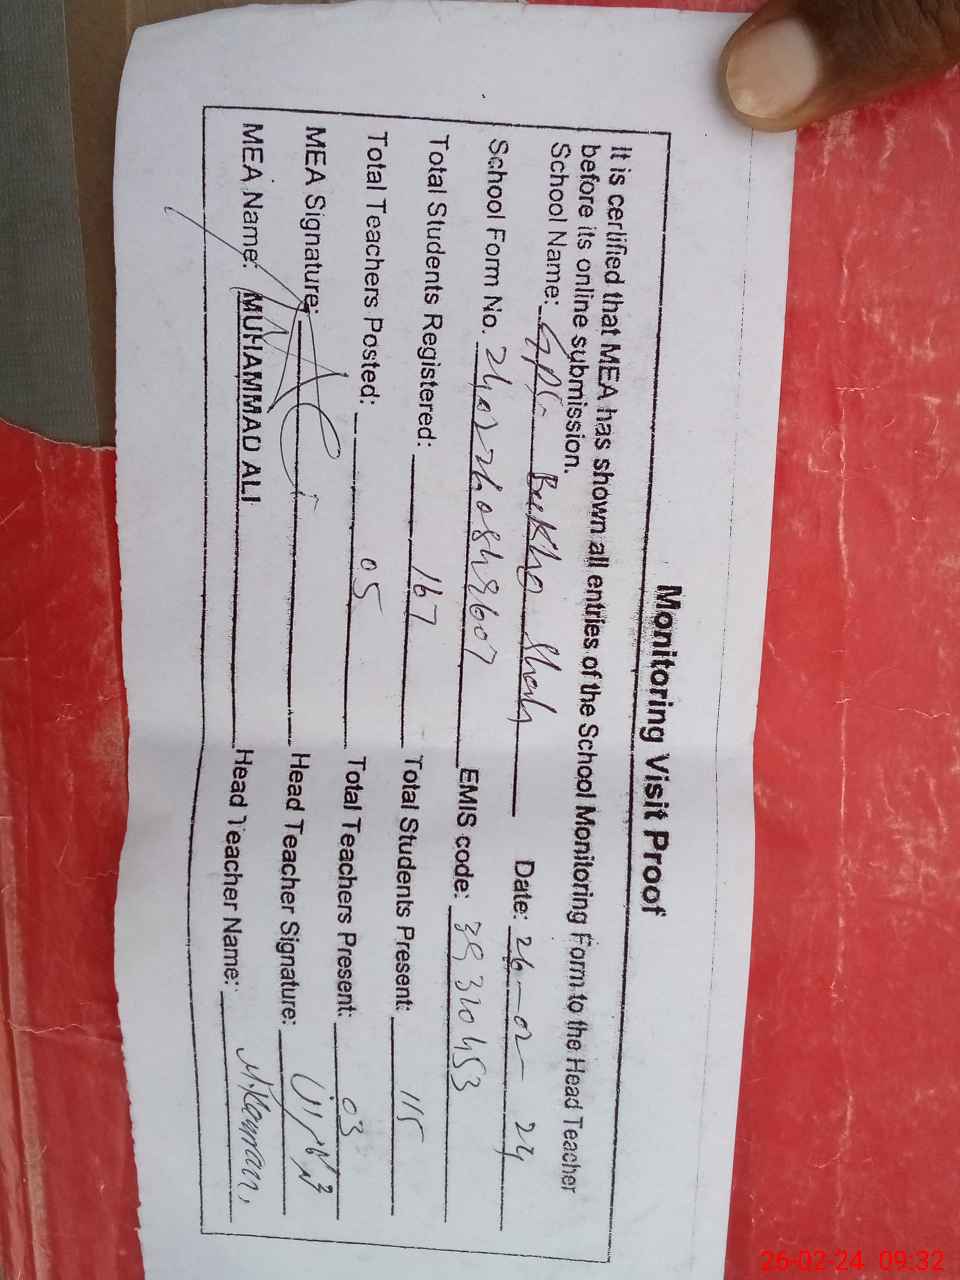 Monitoring Visit Proof
It is certified that MEA has shown all entries of the School Monitoring Form to the Head Teacher
before its online submission.
School Name: GPS Bukho Shah Date: 26-02-24
School Form No. EMIS code:
Total Students Registered: 167 Total Students Present: 115
Total Teachers Posted: 05 Total Teachers Present: 03
MEA Signature: Head Teacher Signature:
MEA Name: MUHAMMAD ALI Head Teacher Name: M. Kamran
26-02-24 09:32